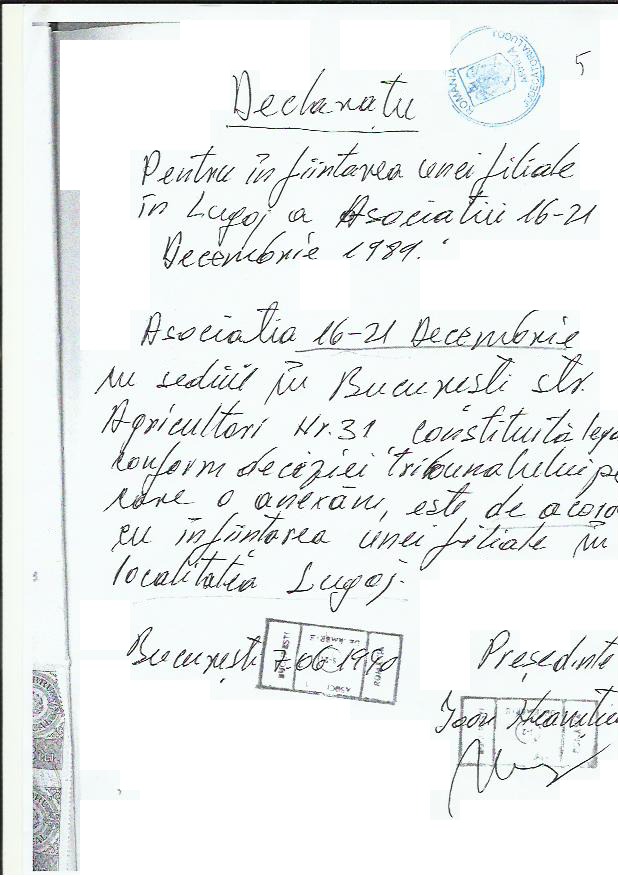 5
ROMÂNIA
JUDECĂTORIA LUGOJ
ARHIVA
Declarație
Pentru înfiintarea unei filiale
în Lugoj a Asociatiei 16-21
Decembrie 1989.
Asociatia 16-21 Decembrie
cu sediul în Bucuresti str.
Agricultori Nr.31 constituită lega
conform deciziei tribunalului pe
care o anexăm, este de acord
cu înfiintarea unei filiale în
localitatea Lugoj.
București 7.06.1990
Președinte
Ioan